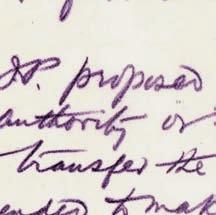 J.P. proposed
authority or
transfer the
to make